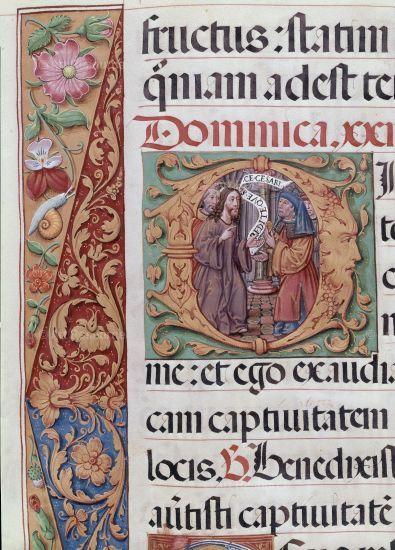 fructus : statim
q̃niam adest te
Dominica.xxi
me : et ego exaudia
cam captiuitatem
locis. ℟. Benedixist
auisti captiuitatē